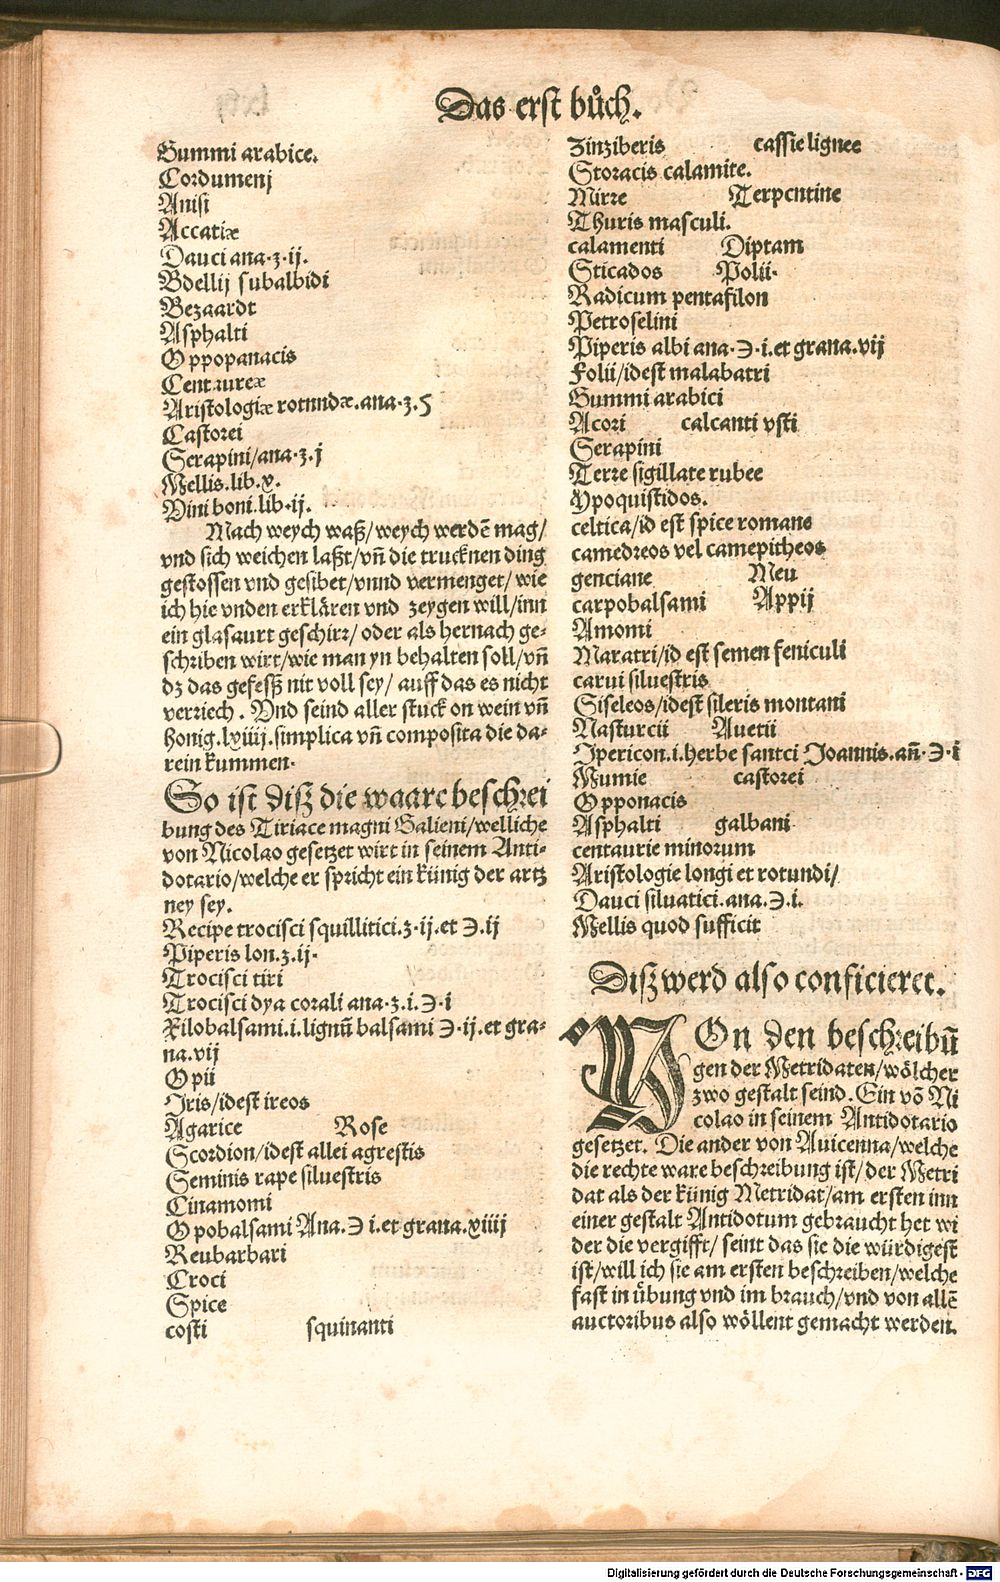 Das erst bůch.
Gummi arabice.
Cordumenj
Anisi
Accatiæ
Dauci ana·ʒ·ij.
Bdellij subalbidi
Bezaardt
Asphalti
Oppopanacis
Centaureæ
Aristologiæ rotundæ.ana.ʒ.5
Castorei
Serapini/ana·ʒ·j
Mellis.lib.x.
Vini boni.lib·ij.
Mach weych waß/weych werdē mag/
vnd sich weichen laßt/vñ die trucknen ding
gestossen vnd gesibet/vnnd vermenget/wie
ich hie vnden erklären vnd zeygen will/inn
ein glasaurt geschirr/oder als hernach ge-
schriben wirt/wie man yn behalten soll/vñ
dz das gefeſß nit voll sey/ auff das es nicht
verriech. Vnd seind aller stuck on wein vñ
honig.lxiiij.simplica vñ composita die da-
rein kummen·
So ist diß die waare beschrei
bung des Tiriace magni Galieni/welliche
von Nicolao gesetzet wirt in seinem Anti-
dotario/welche er spricht ein künig der artz
ney sey.
Recipe trocisci squillitici.ʒ·ij.et ℈.ij
Piperis lon.ʒ.ij·
Trocisci tiri
Trocisci dya corali ana·ʒ.i.℈·i
Xilobalsami.i.lignū balsami ℈·ij.et gra-
na.vij
Opii
Iris/idest ireos
Agarice Rose
Scordion/idest allei agrestis
Seminis rape siluestris
Cinamomi
Opobalsami Ana.℈ i.et grana.xiiij
Reubarbari
Croci
Spice
costi squinanti
Zinziberis cassie lignee
Storacis calamite.
Mirre Terpentine
Thuris masculi.
calamenti Diptam
Sticados Polii·
Radicum pentafilon
Petroselini
Piperis albi ana·℈·i.et grana.vij
Folii/idest malabatri
Gummi arabici
Acori calcanti vsti
Serapini
Terre sigillate rubee
Ypoquistidos.
celtica/id est spice romane
camedreos vel camepitheos
genciane Meu
carpobalsami Appij
Amomi
Maratri/id est semen feniculi
carui siluestris
Siseleos/idest sileris montani
Nasturcii Auetii
Ipericon.i.herbe santci Joannis.añ·℈·i
Mumie castorei
Opponacis
Asphalti galbani
centaurie minorum
Aristologie longi et rotundi/
Dauci siluatici.ana.℈.i.
Mellis quod sufficit
Diß werd also conficieret.
VOn den beschreibū
gen der Metridaten/wölcher
zwo gestalt seind. Ein vō Ni
colao in seinem Antidotario
gesetzet. Die ander von Auicenna/welche
die rechte ware beschreibung ist/der Metri
dat als der künig Metridat/am ersten inn
einer gestalt Antidotum gebraucht het wi
der die vergifft/ seint das sie die würdigest
ist/will ich sie am ersten beschreiben/welche
fast in übung vnd im brauch/vnd von allē
auctoribus also wöllent gemacht werden.
Digitalisierung gefördert durch die Deutsche Forschungsgemeinschaft · DFG